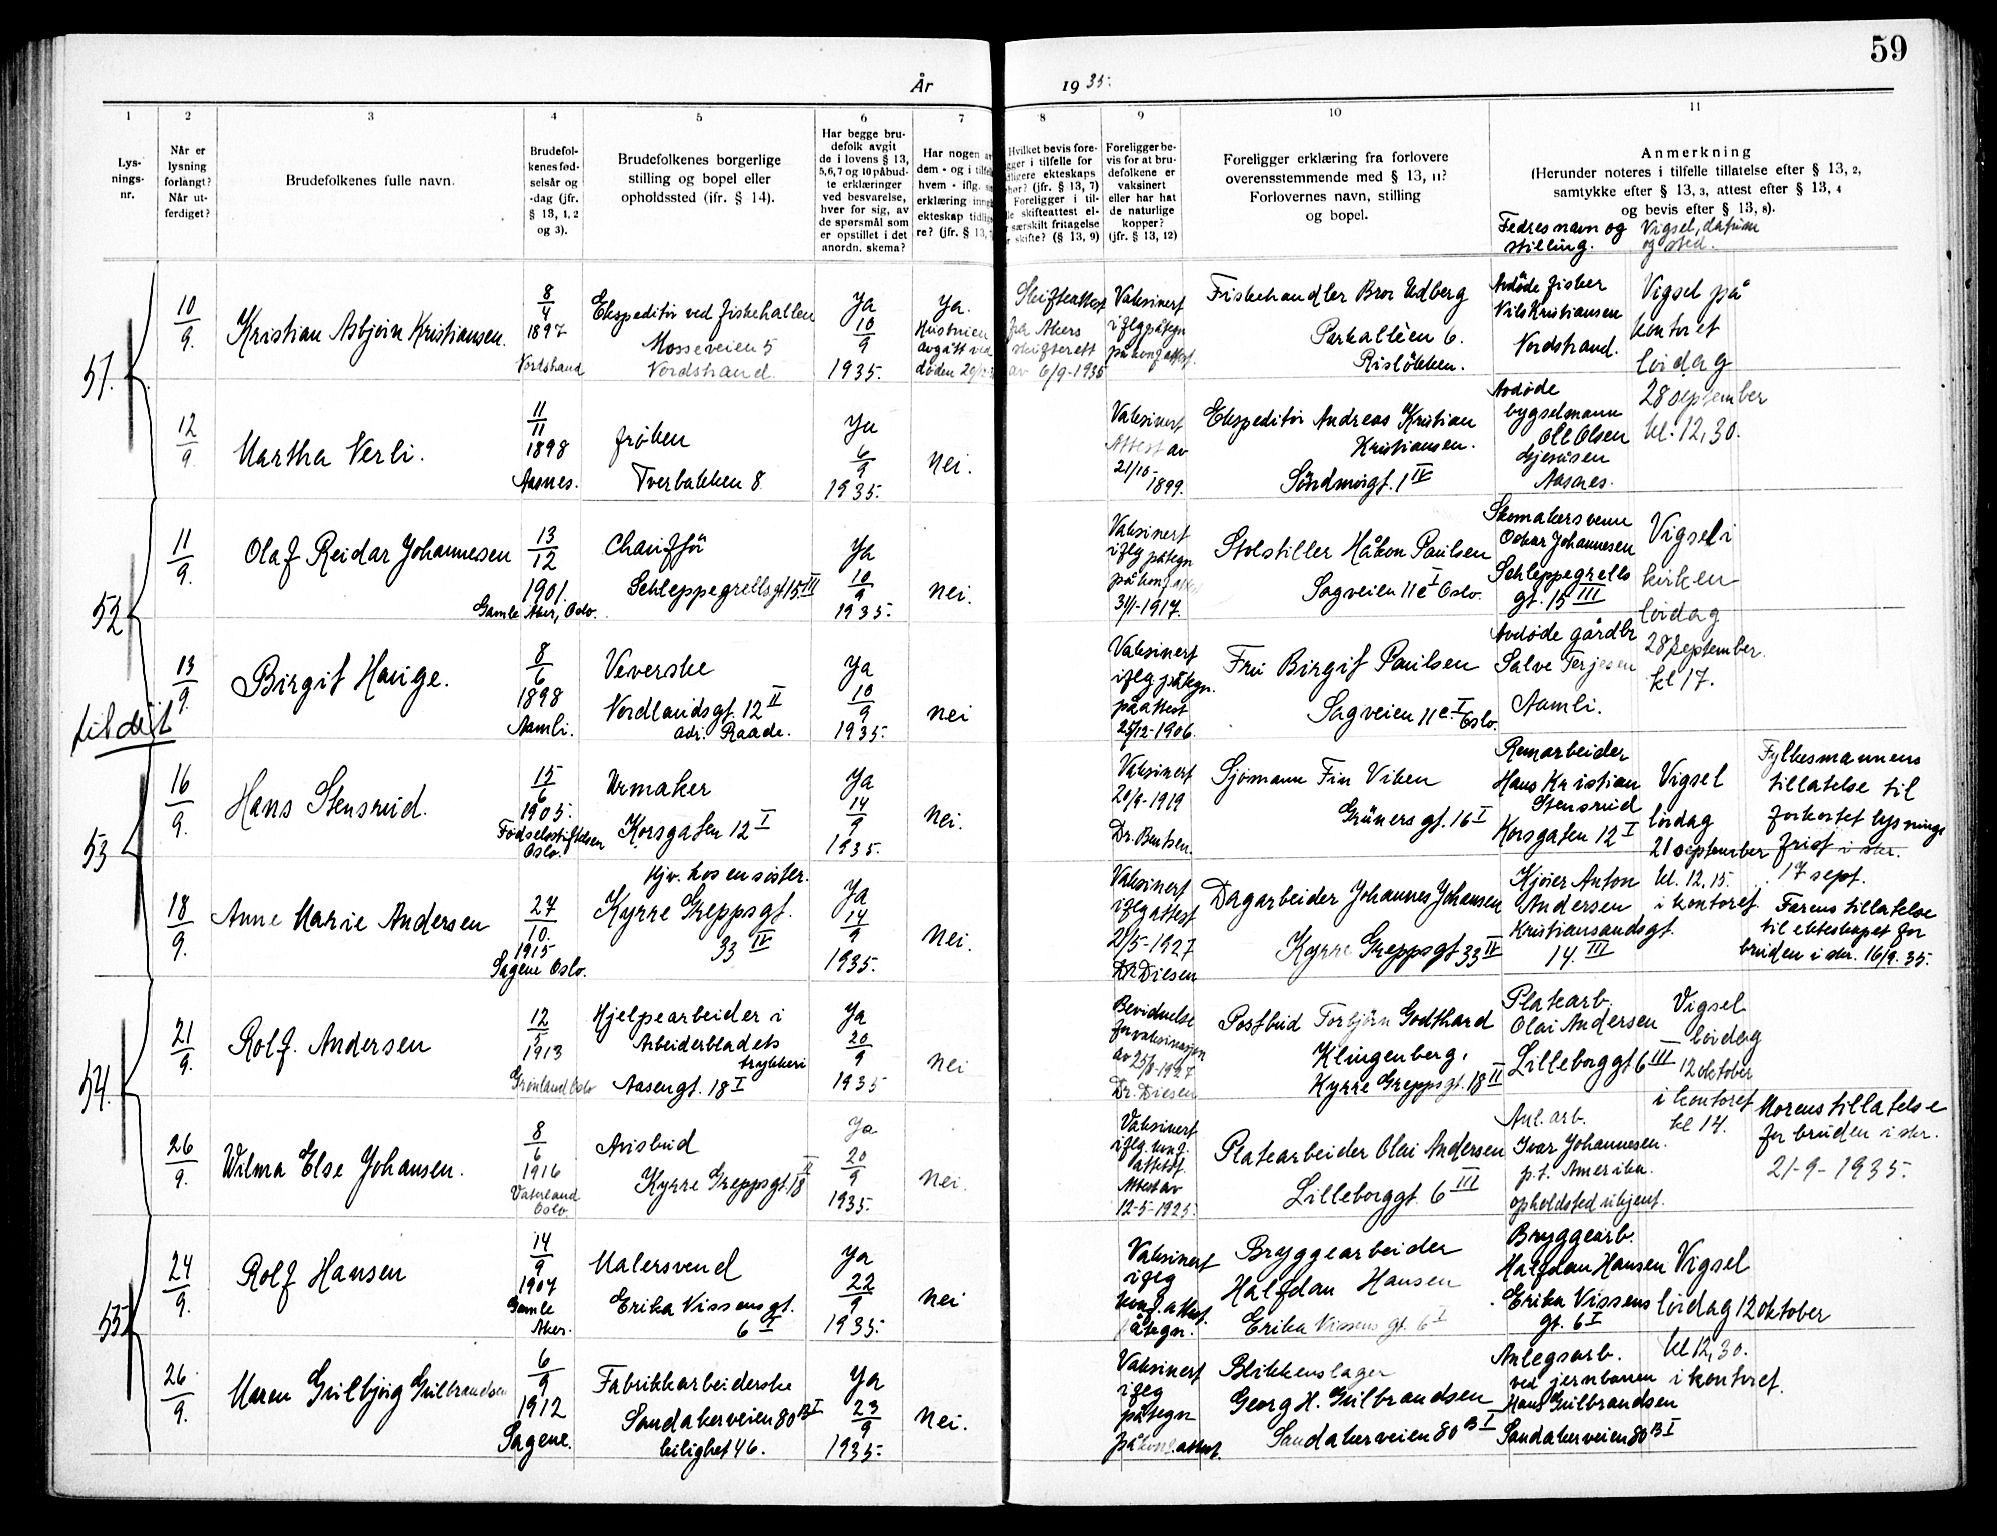 59
År 1935.
1 2 3 4 5 6 7 8 9 10 11
Lys-
nings-
nr.
Når er
lysning
forlangt?
Når ut-
ferdiget?
Brudefolkenes fulle navn.
Brudefol-
kenes fød-
selsår og
-dag (jfr.
§ 13, 1, 2
og 3).
Brudefolkenes borgerlige
stilling og bopel eller
opholdssted (jfr. § 14).
Har begge bru-
defolk avgit
de i lovens § 13,
5,6,7 og 10 påbud-
te erklæringer
ved besvarelse,
hver for sig, av
de spørsmål som
er opstillet i det
anordn. skema?
Har nogen av
dem - og i tilfelle
hvem - iflg. sin
erklæring inngått
ekteskap tidlige-
re? (jfr. § 13,
Hvilket bevis fore-
ligger i tilfelle for
tidligere ekteskaps
ophør? (jfr. § 13, 7)
Foreligger i til-
felle skifteattest el-
ler særskilt fritagelse
for skifte? (§ 13, 9)
Foreligger be-
vis for at bru-
defolkene er
vaksinert
eller har hat
de naturlige
kopper?
(jfr. § 13, 12)
Foreligger erklæring fra forlovere
overensstemmende med § 13, 11?
Forlovernes navn, stilling
og bopel.
Anmerkning
(Herunder noteres i tilfelle tillatelse efter § 13, 2,
samtykke efter § 13, 3, attest efter § 13, 4
og bevis efter § 13, 8).
Fedres navn og
stilling.
Vigsel, datum
og sted.
51.
10/9.
Kristian Asbjørn Kristiansen.
8/4
1897
Nordstrand
Ekspeditør ved fiskehallen
Mosseveien 5
Nordstrand.
Ya
10/9
1935.
Ya.
Hustruen
avgått ved
døden
Skifteattest
fra Akers
skifterett
av 6/9-1935
Vaksinert
iflg påtegn
på konf attest.
Fiskehandler Bror Udberg
Parkallèen 6.
Risløkken.
Avdøde fisker
Nils Kristiansen
Nordstrand.
Vigsel på
kontoret
lørdag
28 september
kl. 12,30.
12/9
Martha Verli.
11/11
1898
Aasnes.
frøken
Tverbakken 8
Ya
6/9
1935.
Nei.
Vaksinert
Attest av
21/10-
1899.
Ekspeditør Andreas Kristian
Kristiansen.
Søndmørgt. 1 IV
Avdøde
bygselmann
Ole Olsen
Gjesåsen
Aasnes.
52
11/9.
Olaf Reidar Johannesen
13/12
1901.
Gamle Aker, Oslo.
Chaufför
Schleppegrellsgt 15 III
Ya
10/9
1935.
Nei.
Vaksinert
iflg påtegn
på konf attest
3/1-1917.
Stolstiller Håkon Paulsen
Sagveien 11c I Oslo.
Skomakersvenn
Oskar Johannesen
Schleppegrells
gt. 15 III
Vigsel i
kirken
lørdag
28 september.
kl 17.
13/9.
Birgit Hauge.
8/6
1898
Aamli.
Veverske
Nordlandsgt. 12 II
adr. Raade.
Ya
10/9
1935.
Nei
Vaksinert
iflg påtegn.
på attest
25/12-1906.
Fru Birgit Paulsen
Sagveien 11c. I Oslo.
Avdøde gårdbr
Salve Terjesen
Aamli.
tildelt
53
16/9.
Hans Stensrud.
15/6
1905.
Fødselsstiftelsen
Oslo.
Urmaker
Korsgaten 12 I
Ya
14/9
1935.
Nei.
Vaksinert
20/9-1919
Dr. Bentsen.
Sjømann Fin Viken
Grüners gt. 16 I
Remarbeider
Hans Kristian
Stensrud
Korsgaten 12 I
Vigsel
lørdag
21 september
kl. 12,15.
i kontoret
Fylkesmannens
tillatelse til
forkortet lysnings
frist i skr.
17 sept.
18/9.
Anne Marie Andersen
27/10.
1915
Sagene Oslo.
Hjv. hos en søster.
Kyrre Greppsgt.
33 IV
Ya
14/9
1935.
Nei.
Vaksinert
iflg attest
2/5-1927
Dr Diesen
Dagarbeider Johannes Johansen
Kyrre Greppsgt 33 IV
Kjører Anton
Andersen
Kristiansandsgt.
14 III
Farens tillatelse
til ekteskapet for
bruden i skr. 16/9. 35.
54.
21/9.
Rolf Andersen
12/5
1913
Grønland Oslo
Hjelpearbeider i
Arbeiderbladets
trykkeri
Aasengt. 18 I
Ya
20/9
1935
Nei
Bevidnelse
for vaksinasjon
av 25/8-1927
Dr. Diesen
Postbud Torbjørn Godthard
Klingenberg.
Kyrre Greppsgt. 18 II
Platearb.
Olai Andersen
Lilleborggt 6 III
Vigsel
lørdag
12 oktober
i kontoret
kl 14.
26/9.
Wilma Else Johansen.
8/6
1916
Vaterland
Oslo.
Avisbud
Kyrre Greppsgt. 18 II
Ya
20/9
1935.
Nei.
Vaksinert
iflg. konf.
attest
Attest av
12-5-1925.
Platearbeider Olai Andersen
Lilleborggt. 6 III
Anl. arb.
Ivar Johannesen.
p.t. Amerika.
opholdsted ukjent.
Morens tillatelse
for bruden i skr.
21-9-1935.
55
24/9.
Rolf Hansen
14/9
1907
Gamle
Aker.
Malersvend
Erika Nissens gt.
6 I
Ya
22/9
1935.
Nei
Vaksinert
iflg
konf. attest
påtegn.
Bryggearbeider
Halfdan Hansen
Erika Nissens gt. 6 I
Bryggearb.
Halfdan Hansen
Erika Nissens
gt. 6 I
Vigsel
lørdag 12 oktober
kl 12,30.
i kontoret.
26/9.
Maren Gulbjørg Gulbrandsen
6/9
1912
Sagene.
Fabrikkarbeiderske
Sandakerveien 80 B I
leilighet 46.
Ya
23/9
1935.
Nei.
Vaksinert
iflg
påtegn
på konf. attest.
Blikkenslager
Georg H. Gulbrandsen
Sandakerveien 80 B I
Anlegsarb.
ved jernbanen
Hans Gulbrandsen
Sandakerveien 80 B I